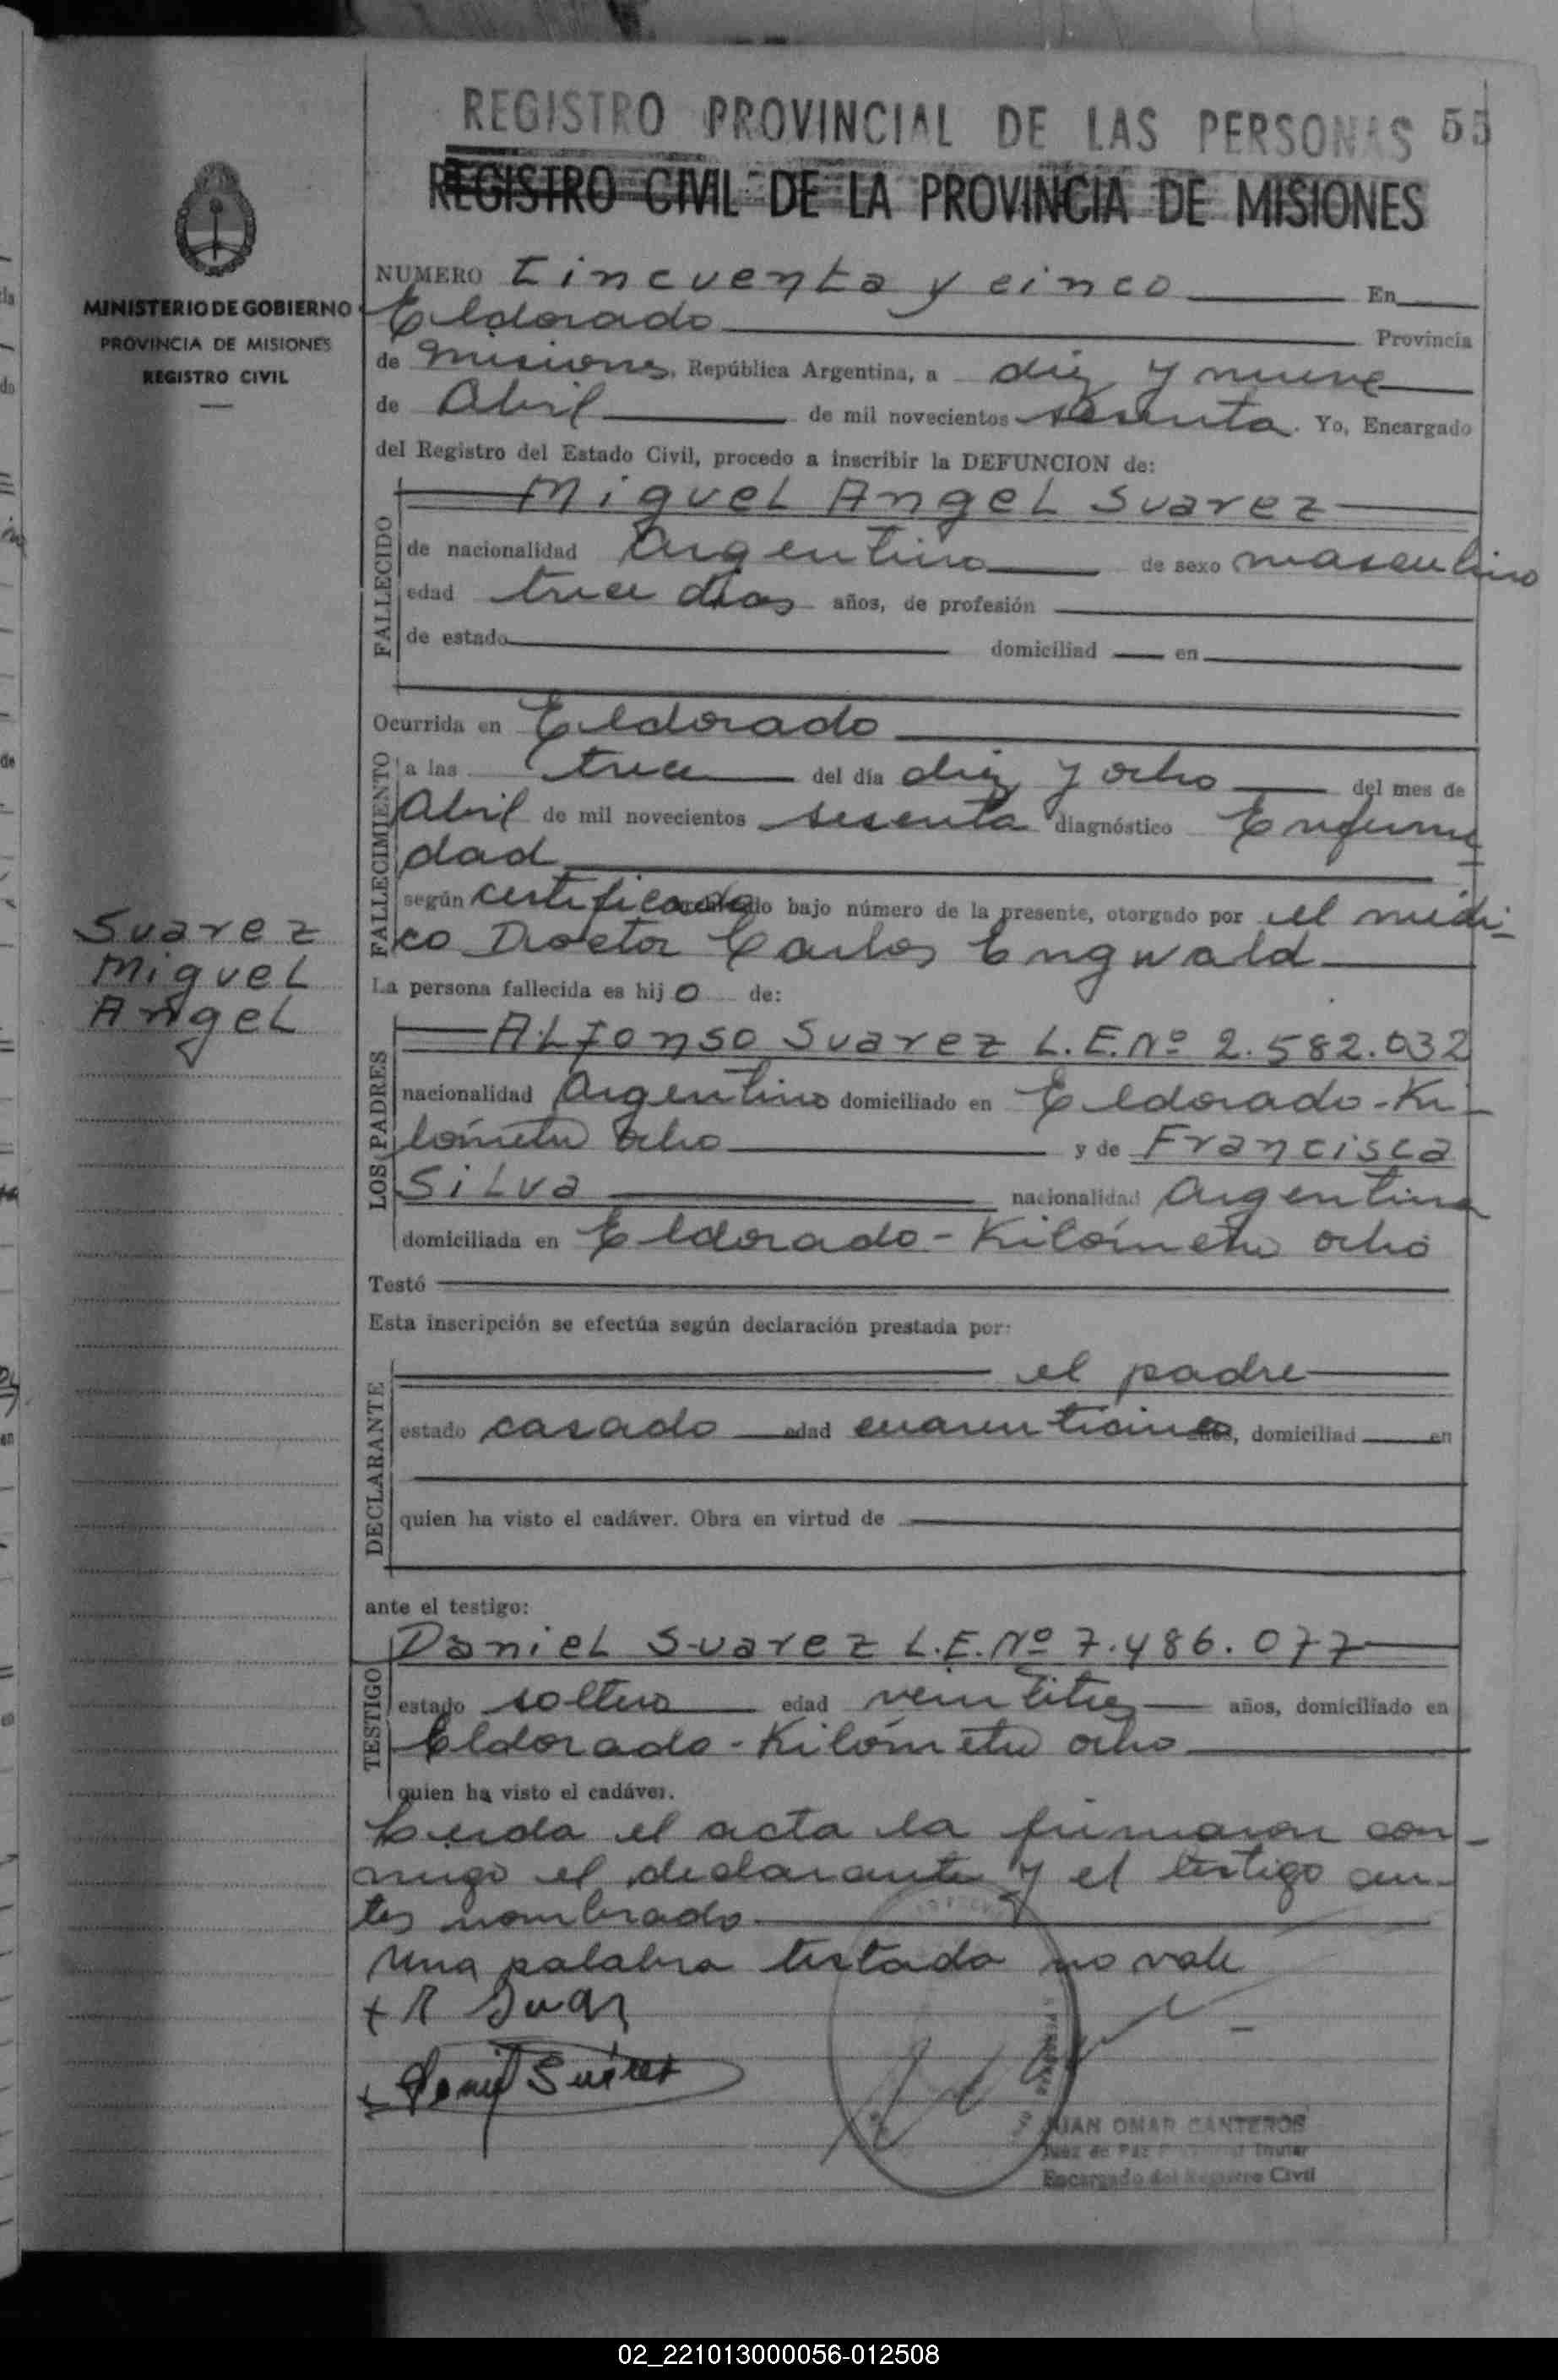 REGISTRO PROVINCIAL DE LAS PERSONAS 55
REGISTRO CIVIL DE LA PROVINCIA DE MISIONES
MINISTERIO DE GOBIERNO
PROVINCIA DE MISIONES
REGISTRO CIVIL
NUMERO Cincuenta y cinco En
Eldorado Provincia
de Misiones, República Argentina, a diez y nueve
de Abril de mil novecientos sesenta. Yo, Encargado
del Registro del Estado Civil, procedo a inscribir la DEFUNCION de:
FALLECIDO
Miguel Angel Suarez
de nacionalidad Argentino de sexo masculino
edad trece dias años, de profesión
de estado domiciliad en
Ocurrida en Eldorado
FALLECIMIENTO
a las trece del día diez y ocho del mes de
Abril de mil novecientos sesenta diagnóstico Enferme
dad
según certificado bajo número de la presente, otorgado por el médi-
co Doctor Carlos Engwald
Suarez
Miguel
Angel
La persona fallecida es hijo de:
LOS PADRES
Alfonso Suarez L.E.Nº 2.582.032
nacionalidad Argentino domiciliado en Eldorado-Ki-
lómetro ocho y de Francisca
Silva nacionalidad Argentina
domiciliada en Eldorado-Kilómetro ocho
Testó
Esta inscripción se efectúa según declaración prestada por:
DECLARANTE
el padre
estado casado edad cuarenticinco, domiciliad en
quien ha visto el cadáver. Obra en virtud de
ante el testigo:
TESTIGO
Daniel Suarez L.E.Nº 7.486.077
estado soltero edad veintitres años, domiciliado en
Eldorado-Kilómetro ocho
quien ha visto el cadáver.
Leida el acta la firmaron con-
migo el declarante y el testigo an-
tes nombrado
Una palabra testada no vale
Daniel Suarez
JUAN OMAR CANTEROS
Juez de Paz Titular
Encargado del Registro Civil
02_221013000056-012508